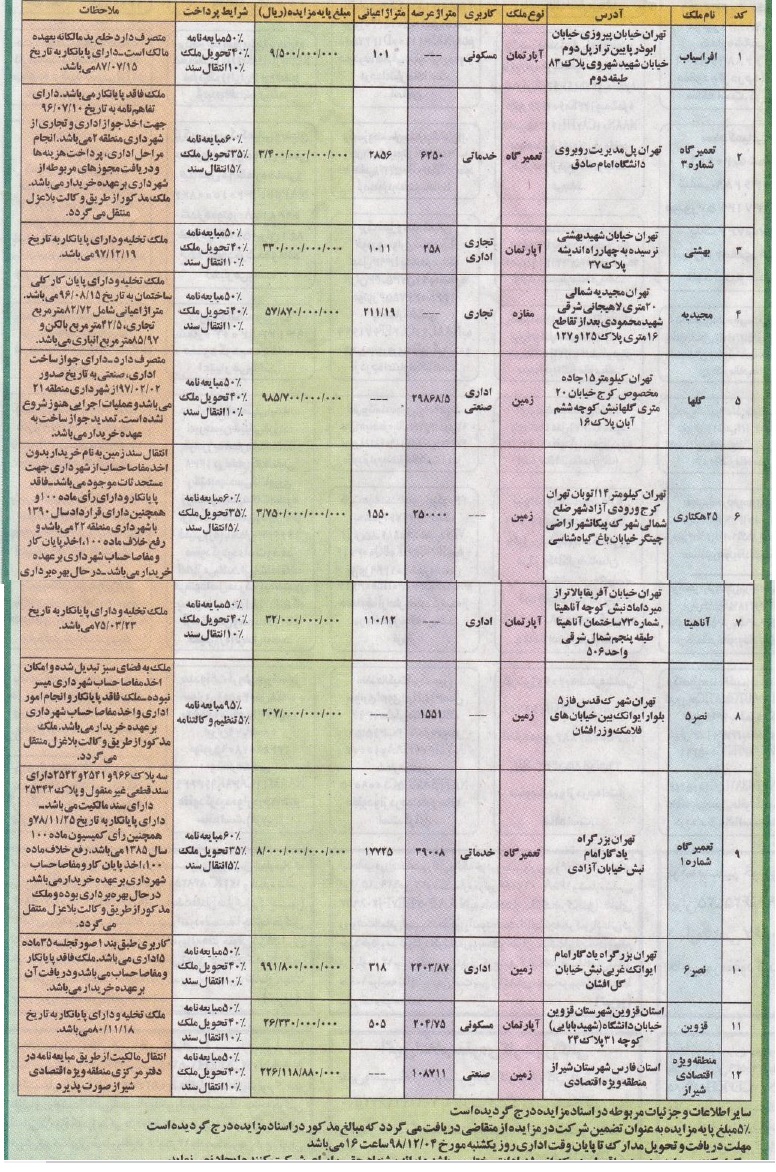 کد نام ملک آدرس نوع ملک کاربری متراژ عرصه متراژ اعیانی مبلغ پایه مزایده (ریال) شرایط پرداخت ملاحظات
۱ افراسیاب تهران خیابان پیروزی خیابان ابوذر پایین تر از پل دوم خیابان شهید شهروی پلاک ۸۳ طبقه دوم آپارتمان مسکونی --- ۱۰۱ ۹/۵۰۰/۰۰۰/۰۰۰ ۵۰٪ مبایعه نامه ۴۰٪ تحویل ملک ۱۰٪ انتقال سند متصرف دارد خلع ید مالکانه بعهده مالک است-دارای پایانکار به تاریخ ۸۷/۰۷/۱۵ می‌باشد.
۲ تعمیرگاه شماره ۳ تهران پل مدیریت روبروی دانشگاه امام صادق تعمیرگاه خدماتی ۶۲۵۰ ۲۸۵۶ ۳/۴۰۰/۰۰۰/۰۰۰/۰۰۰ ۶۰٪ مبایعه نامه ۳۵٪ تحویل ملک ۵٪ انتقال سند ملک فاقد پایانکار می‌باشد. دارای تفاهم نامه به تاریخ ۹۶/۰۷/۱۰ جهت اخذ جواز اداری و تجاری از شهرداری منطقه ۲ می‌باشد. انجام مراحل اداری، پرداخت هزینه‌ها و دریافت مجوزهای مربوطه از شهرداری بر عهده خریدار می‌باشد. ملک مذکور از طریق وکالت بلاعزل منتقل می‌گردد.
۳ بهشتی تهران خیابان شهید بهشتی نرسیده به چهارراه اندیشه پلاک ۳۷ آپارتمان تجاری اداری ۲۵۸ ۱۰۱۱ ۳۳۰/۰۰۰/۰۰۰/۰۰۰ ۵۰٪ مبایعه نامه ۴۰٪ تحویل ملک ۱۰٪ انتقال سند ملک تخلیه و دارای پایانکار به تاریخ ۹۷/۱۲/۱۹ می‌باشد.
۴ مجیدیه تهران مجیدیه شمالی ۲۰ متری لاهیجانی شرقی شهید محمودی بعد از تقاطع ۱۶ متری پلاک ۱۲۵ و ۱۲۷ مغازه تجاری --- ۲۱۱/۱۹ ۵۷/۸۷۰/۰۰۰/۰۰۰ ۵۰٪ مبایعه نامه ۴۰٪ تحویل ملک ۱۰٪ انتقال سند ملک تخلیه و دارای پایان کار کلی ساختمان به تاریخ ۹۶/۰۸/۱۵ می‌باشد. متراژ اعیانی شامل ۸۲/۷۲ مترمربع تجاری، ۴۲/۵ مترمربع بالکن و ۸۵/۹۷ مترمربع انباری می‌باشد.
۵ گلها تهران کیلومتر ۱۵ جاده مخصوص کرج خیابان ۲۰ متری گلها نبش کوچه ششم آبان پلاک ۱۶ زمین اداری صنعتی ۲۹۸۶۸/۵ --- ۹۸۵/۷۰۰/۰۰۰/۰۰۰ ۵۰٪ مبایعه نامه ۴۰٪ تحویل ملک ۱۰٪ انتقال سند متصرف دارد-دارای جواز ساخت اداری، صنعتی به تاریخ صدور ۹۷/۰۲/۰۲ از شهرداری منطقه ۲۱ می‌باشد و عملیات اجرایی هنوز شروع نشده است. تمدید جواز ساخت به عهده خریدار می‌باشد.
۶ ۲۵ هکتاری تهران کیلومتر ۱۴ اتوبان تهران کرج ورودی آزادشهر ضلع شمالی شهرک پیکانشهر اراضی چیتگر خیابان باغ گیاه شناسی زمین ---- ۲۵۰۰۰۰ ۱۵۵۰ ۳/۷۵۰/۰۰۰/۰۰۰/۰۰۰ ۶۰٪ مبایعه نامه ۳۵٪ تحویل ملک ۵٪ انتقال سند انتقال سند زمین به نام خریدار بدون اخذ مفاصا حساب از شهرداری جهت مستحدثات موجود می‌باشد-فاقد پایانکار و دارای رأی ماده ۱۰۰ و همچنین دارای قرارداد سال ۱۳۹۰ با شهرداری منطقه ۲۲ می‌باشد و رفع خلاف ماده ۱۰۰، اخذ پایان کار و مفاصا حساب شهرداری بر عهده خریدار می‌باشد-در حال بهره‌برداری
۷ آناهیتا تهران خیابان آفریقا بالاتر از میرداماد نبش کوچه آناهیتا، شماره ۷۳ ساختمان آناهیتا طبقه پنجم شمال شرقی واحد ۵۰۶ آپارتمان اداری ---- ۱۱۰/۱۲ ۳۲/۰۰۰/۰۰۰/۰۰۰ ۵۰٪ مبایعه نامه ۴۰٪ تحویل ملک ۱۰٪ انتقال سند ملک تخلیه و دارای پایانکار به تاریخ ۷۵/۰۳/۲۳ می‌باشد.
۸ نصر ۵ تهران شهرک قدس فاز ۵ بلوار ایوانک بین خیابان های فلامک و زرافشان زمین ---- ۱۵۵۱ ---- ۲۰۷/۰۰۰/۰۰۰/۰۰۰ ۹۵٪ مبایعه نامه ۵٪ تنظیم وکالتنامه ملک به فضای سبز تبدیل شده و امکان اخذ مفاصا حساب شهرداری میسر نبوده-ملک فاقد پایانکار و انجام امور اداری و اخذ مفاصا حساب شهرداری بر عهده خریدار می‌باشد. ملک مذکور از طریق وکالت بلاعزل منتقل می‌گردد.
۹ تعمیرگاه شماره ۱ تهران بزرگراه یادگار امام نبش خیابان آزادی تعمیرگاه خدماتی ۳۹۰۰۸ ۱۷۷۲۵ ۸/۰۰۰/۰۰۰/۰۰۰/۰۰۰ ۶۰٪ مبایعه نامه ۳۵٪ تحویل ملک ۵٪ انتقال سند سه پلاک ۹۶۶ و ۲۵۴۱ و ۲۵۴۲ دارای سند قطعی غیر منقول و پلاک ۲۵۳۴۲ دارای سند مالکیت می‌باشد- دارای پایانکار به تاریخ ۷۸/۱۱/۲۵ و همچنین رأی کمیسیون ماده ۱۰۰ سال ۱۳۸۵ می‌باشد. رفع خلاف ماده ۱۰۰، اخذ پایان کار و مفاصا حساب شهرداری بر عهده خریدار می‌باشد. در حال بهره برداری بوده و ملک مذکور از طریق وکالت بلاعزل منتقل می‌گردد.
۱۰ نصر ۶ تهران بزرگراه یادگار امام ایوانک غربی نبش خیابان گل افشان زمین اداری ۲۴۰۳/۸۷ ۳۱۸ ۹۹۱/۸۰۰/۰۰۰/۰۰۰ ۵۰٪ مبایعه نامه ۴۰٪ تحویل ملک ۱۰٪ انتقال سند کاربری طبق بند ۱ صورتجلسه ۳۵ ماده ۵ اداری می‌باشد. ملک فاقد پایانکار و مفاصا حساب می‌باشد و دریافت آن بر عهده خریدار می‌باشد.
۱۱ قزوین استان قزوین شهرستان قزوین خیابان دانشگاه (شهید بابایی) کوچه ۳۱ پلاک ۲۴ آپارتمان مسکونی ۲۰۴/۷۵ ۵۰۵ ۲۶/۳۳۰/۰۰۰/۰۰۰ ۵۰٪ مبایعه نامه ۴۰٪ تحویل ملک ۱۰٪ انتقال سند ملک تخلیه و دارای پایانکار به تاریخ ۸۰/۱۱/۱۸ می‌باشد.
۱۲ منطقه ویژه اقتصادی شیراز استان فارس شهرستان شیراز منطقه ویژه اقتصادی زمین صنعتی ۱۰۸۷۱۱ --- ۲۲۶/۱۱۸/۸۸۰/۰۰۰ ۵۰٪ مبایعه نامه ۴۰٪ تحویل ملک ۱۰٪ انتقال سند انتقال مالکیت از طریق مبایعه نامه در دفتر مرکزی منطقه ویژه اقتصادی شیراز صورت پذیرد
سایر اطلاعات و جزئیات مربوطه در اسناد مزایده درج گردیده است
۵٪ مبلغ پایه مزایده به عنوان تضمین شرکت در مزایده از متقاضی دریافت می گردد که مبالغ مذکور در اسناد مزایده درج گردیده است
مهلت دریافت و تحویل مدارک تا پایان وقت اداری روز یکشنبه مورخ ۹۸/۱۲/۰۴ ساعت ۱۶ می‌باشد